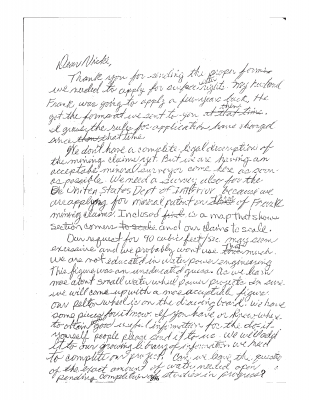 Dear Vicki,
Thank you for sending the proper forms
we needed to apply for water rights. My husband
Frank was going to apply a few years back. He
got the forms and we sent to you at that time.
I guess the rules for application have changed
since then that time.
We don't have a complete legal description of
the mining claims yet. But we are having an
acceptable mineral surveyor come here as soon
as possible. We need a survey also for the
United States Dept of Interior because we
are applying for mineral patent on of Frank
mining claims. Inclosed find is a map that shows
section corners to scale and our claims to scale.
Our request for 90 cubic feet/sec may seem
excessive and we probably won't use that much
we are not educated in water power engineering
This figure was an uneducated guess. As we learn
more about small water wheel power projects I'm sure
we will come up with a more acceptable figure
our pelton wheel is on the drawing board. We have
some prices for it now. If you have or know where
to obtain good useful information for the do it
yourself people please send it to us. We will add
it to our growing library of information we need
to complete our project. Can we leave the question
of the exact amount of water needed open
pending completion of the studies in progress?